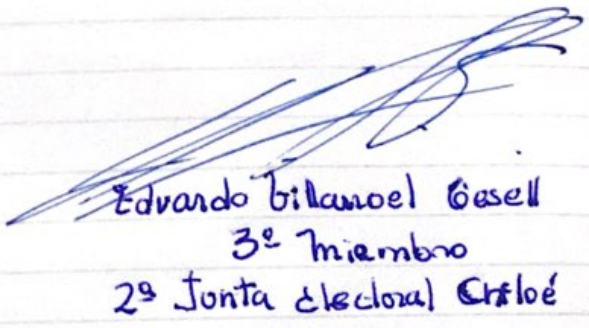 Eduardo Villarroel Gesell
3º Miembro
2ª Junta Electoral Chiloé